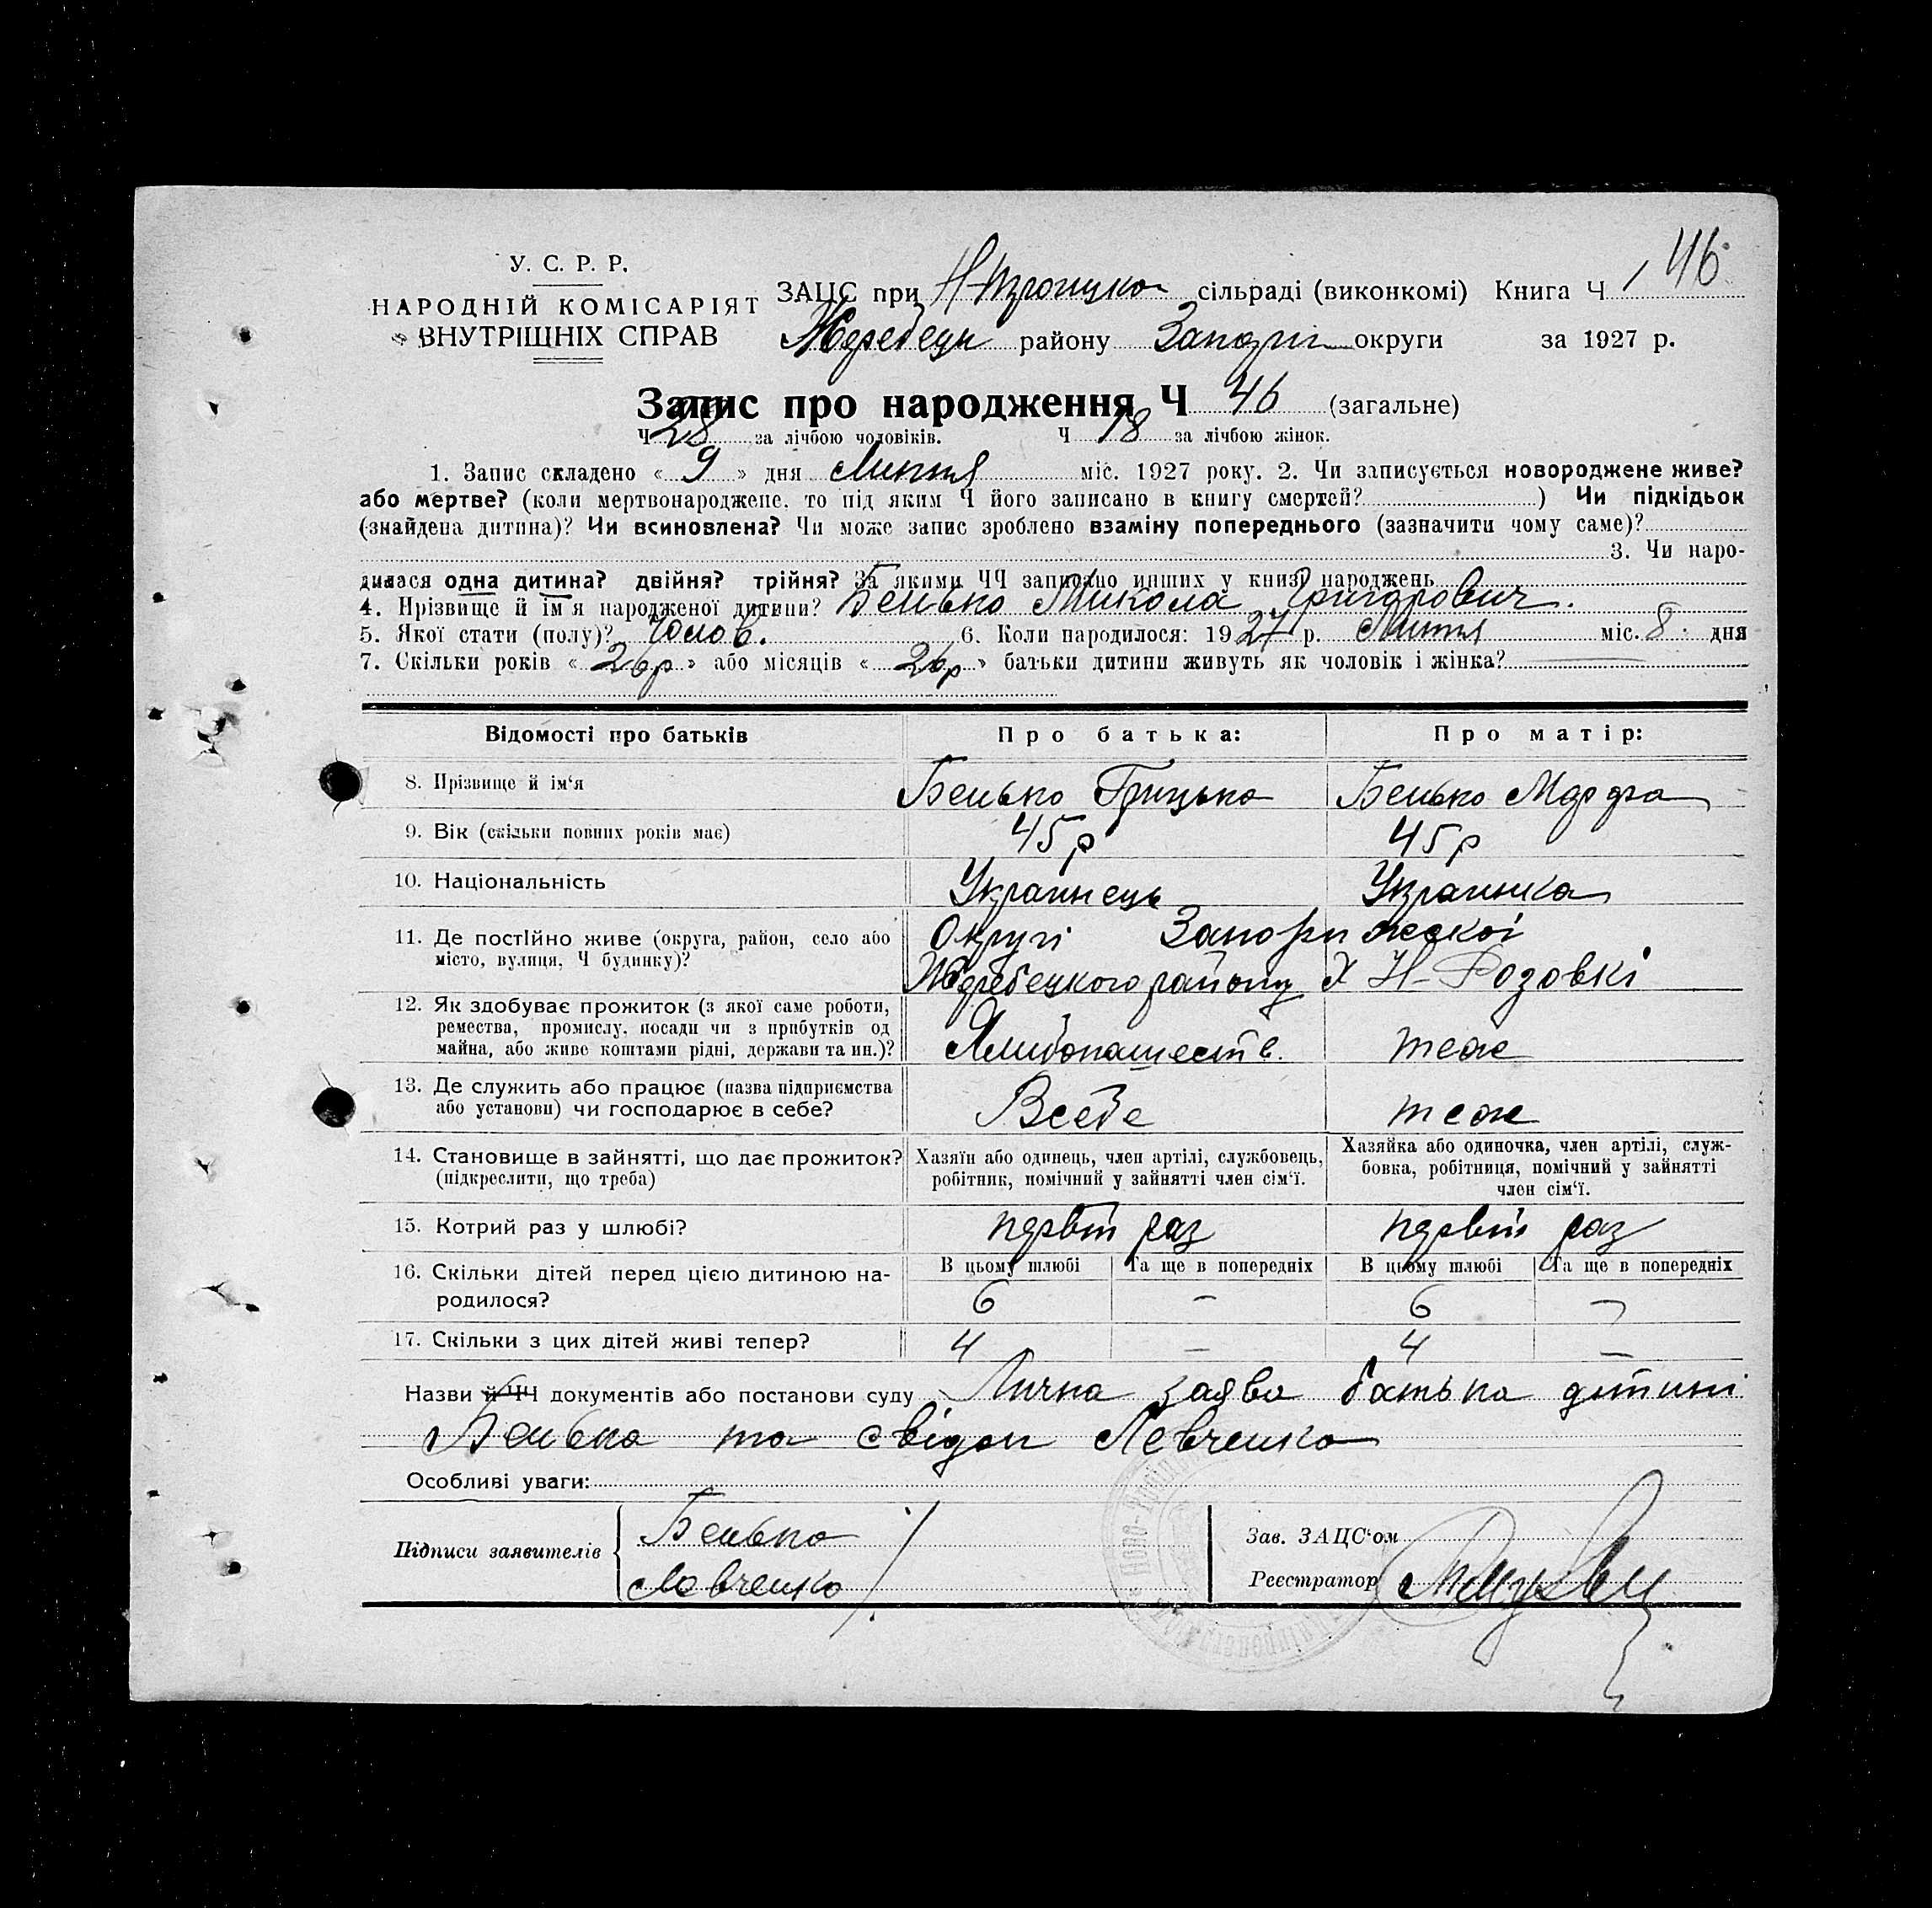 У. С. Р. Р.
НАРОДНІЙ КОМІСАРІЯТ
ВНУТРІШНІХ СПРАВ
46
ЗАЦС при Н-Троицко сільраді (виконкомі) Книга Ч 1
Жеребецк району Запоріж округи за 1927 р.
Запис про народження Ч 46 (загальне)
Ч 28 за лічбою чоловіків. Ч 18 за лічбою жінок.
1. Запис складено « 9 » дня Липня міс. 1927 року. 2. Чи записується новороджене живе?
або мертве? (коли мертвонароджене, то під яким Ч його записано в книгу смертей?) Чи підкідьок
(знайдена дитина)? Чи всиновлена? Чи може запис зроблено взаміну попереднього (зазначити чому саме)?
3. Чи наро-
дилася одна дитина? двійня? трійня? За якими ЧЧ записано инших у книзі народжень
4. Прізвище й ім'я народженої дитини? Бенько Микола Григорович.
5. Якої стати (полу)? Чолов. 6. Коли народилося: 1927 р. Липня міс. 8 дня
7. Скільки років « 26р » або місяців « 26р » батьки дитини живуть як чоловік і жінка?
Відомості про батьків Про батька: Про матір:
8. Прізвище й ім'я Бенько Грицько Бенько Марфа
9. Вік (скільки повних років має) 45 р 45 р
10. Національність Украинець Украинка
11. Де постійно живе (округа, район, село або Округі Запоріжскоі
місто, вулиця, Ч будинку)? Жеребецкого району Х Н-Розовкі
12. Як здобуває прожиток (з якої саме роботи,
ремества, промислу, посади чи з прибутків од
майна, або живе коштами рідні, держави та ин.)? теж
13. Де служить або працює (назва підприємства
або установи) чи господарює в себе? Всебе теж
14. Становище в зайнятті, що дає прожиток? Хазяїн або одинець, член артілі, службовець, Хазяйка або одиночка, член артілі, служ-
(підкреслити, що треба) робітник, помічний у зайнятті член сім'ї. бовка, робітниця, помічний у зайнятті
член сім'ї.
15. Котрий раз у шлюбі? раз раз
16. Скільки дітей перед цією дитиною на- В цьому шлюбі Та ще в попередніх В цьому шлюбі Та ще в попередніх
родилося? 6 – 6 –
17. Скільки з цих дітей живі тепер? 4 – 4 –
Назви й ЧЧ документів або постанови суду Лична заява батька дитини
Бенька та свідок Левченко
Особливі уваги:
Підписи заявителів Бенько Зав. ЗАЦС'ом
Левченко Реєстратор